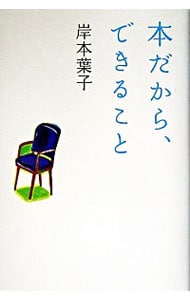 本だから、
できること
岸本葉子